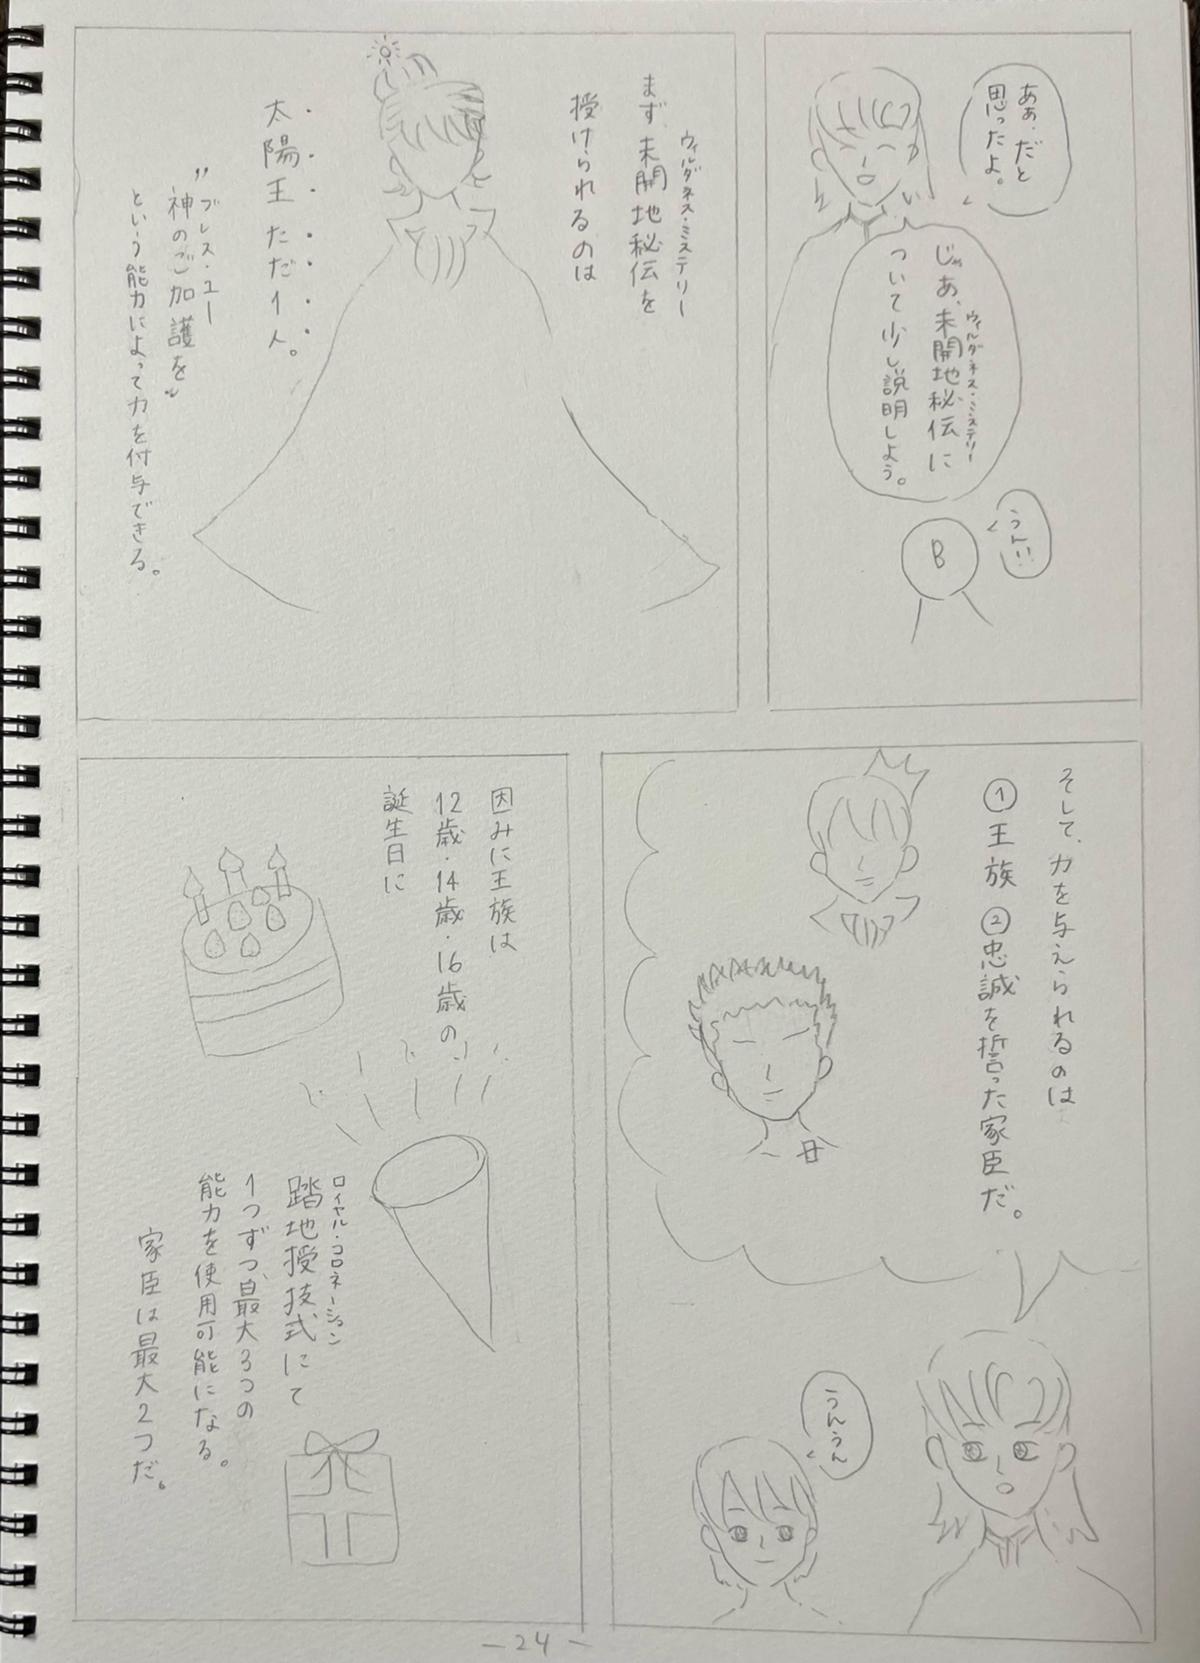 ああ、だと
思ったよ。
じゃあ、未開地秘伝に
ウィルダネス・ミステリー
ついて少し説明しよう。
うん!!
B
まず、未開地秘伝を
ウィルダネス・ミステリー
授けられるのは
太陽王ただ1人。
"神のご加護を"
ブレス・ユー
という能力によって力を付与できる。
そして、力を与えられるのは
①王族 ②忠誠を誓った家臣だ。
うんうん
因みに王族は
12歳・14歳・16歳の
誕生日に
踏地授技式にて
ロイヤル・コロネーション
1つずつ、最大3つの
能力を使用可能になる。
家臣は最大2つだ。
-24-